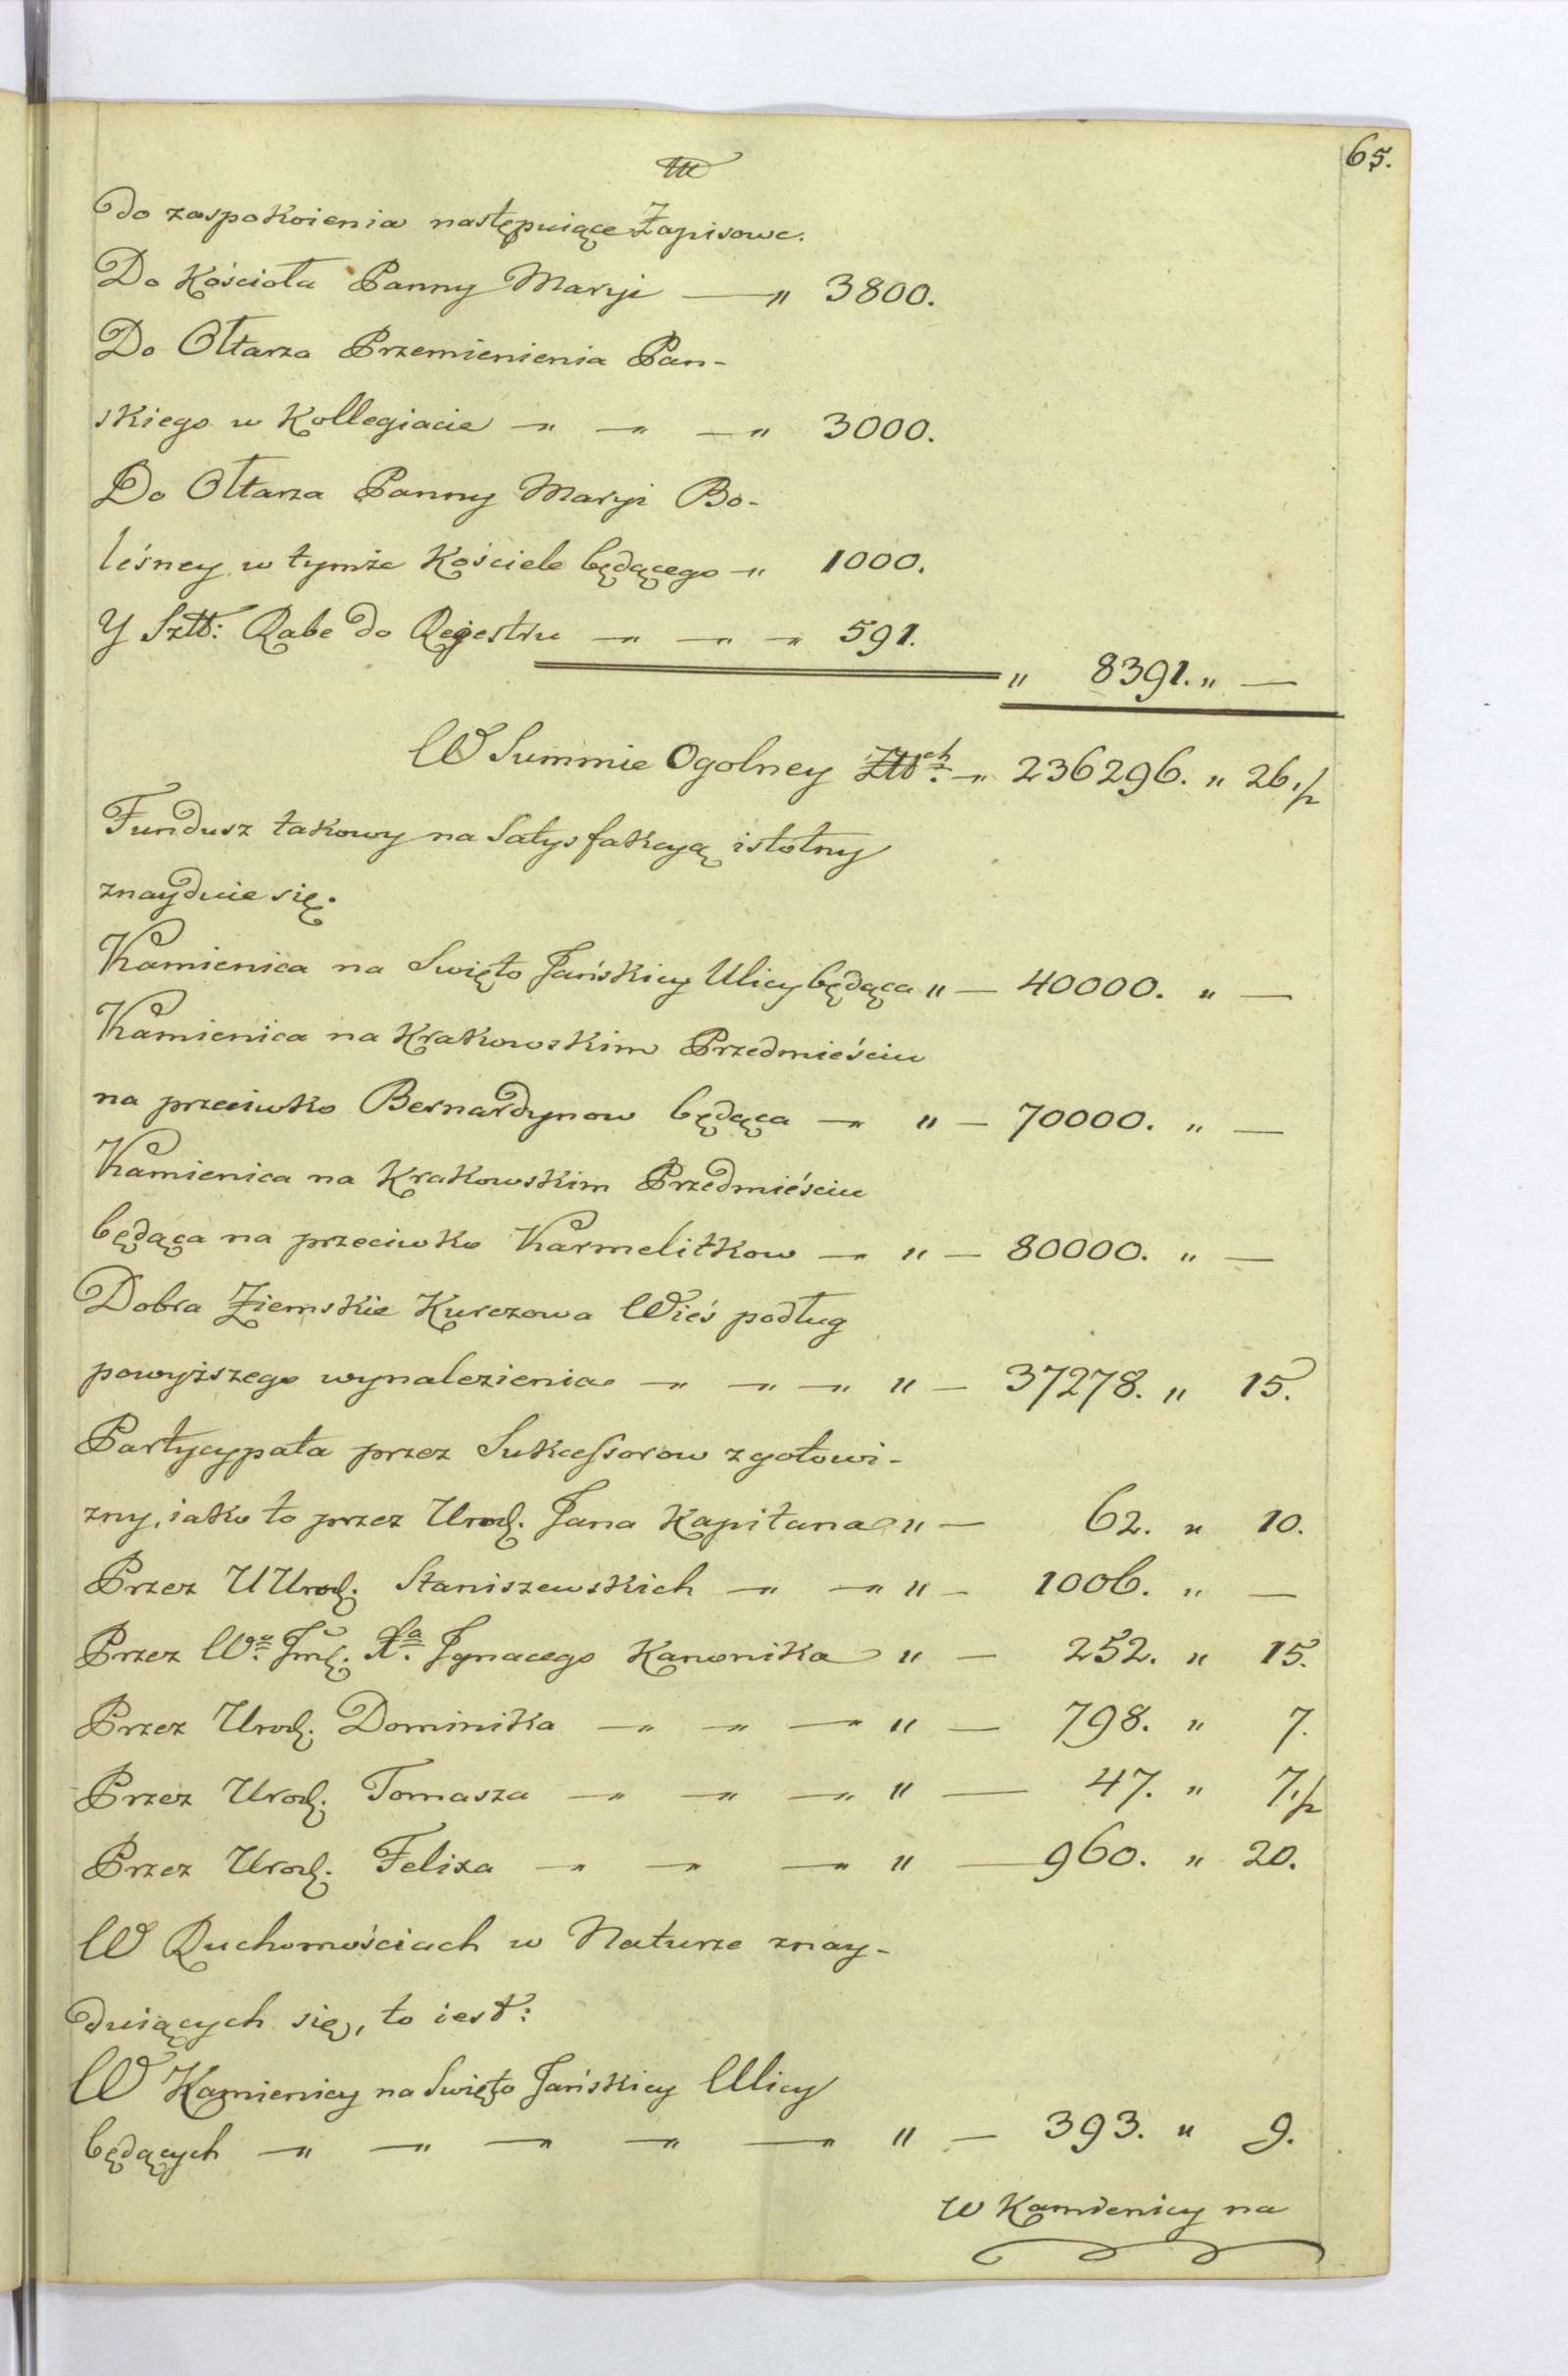 65.
do zaspokoienia następuiące Zapisowe.
Do Kościoła Panny Maryi — " 3800.
Do Ołtarza Przemienienia Pan-
skiego w Kollegiacie — " — " — " 3000.
Do Ołtarza Panny Maryi Bo-
leśney w tymże Kościele będącego — " 1000.
Y Sztt: Rabe do Regestru — " — " — " 591.
" 8391. " —
W Summie Ogolney — " 236296. " 26.
Fundusz takowy na Satysfakcyą istotny
znayduie się.
Kamienica na Swięto Jańskiey Ulicy będąca " — 40000. " —
Kamienica na Krakowskim Przedmieściu
na przeciwko Bernardynow będąca — " — 70000. " —
Kamienica na Krakowskim Przedmieściu
będąca na przeciwko Karmelitkow — " — 80000. " —
Dobra Ziemskie Kurczowa Wieś podług
powyższego wynalezienia — " — " — " " — 37278. " 15.
Partycypata przez Sukcessorow z gotowi-
zny, iako to przez Urod. Jana Kapitana " — 62. " 10.
Przez UUrod. Staniszewskich — " — " " — 1006. " —
Przez Wo. Jmć. Xa. Jgnacego Kanonika " — 252. " 15.
Przez Urod. Dominika — " — " — " " — 798. " 7.
Przez Urod. Tomasza — " — " — " " — 47. " 7.
Przez Urod. Felixa — " — " — " " — 960. " 20.
W Ruchomościach w Naturze znay-
duiących się, to iest:
W Kamienicy na Swięto Jańskiey Ulicy
będących — " — " — " — " — " " — 393. " 9.
w Kamienicy na